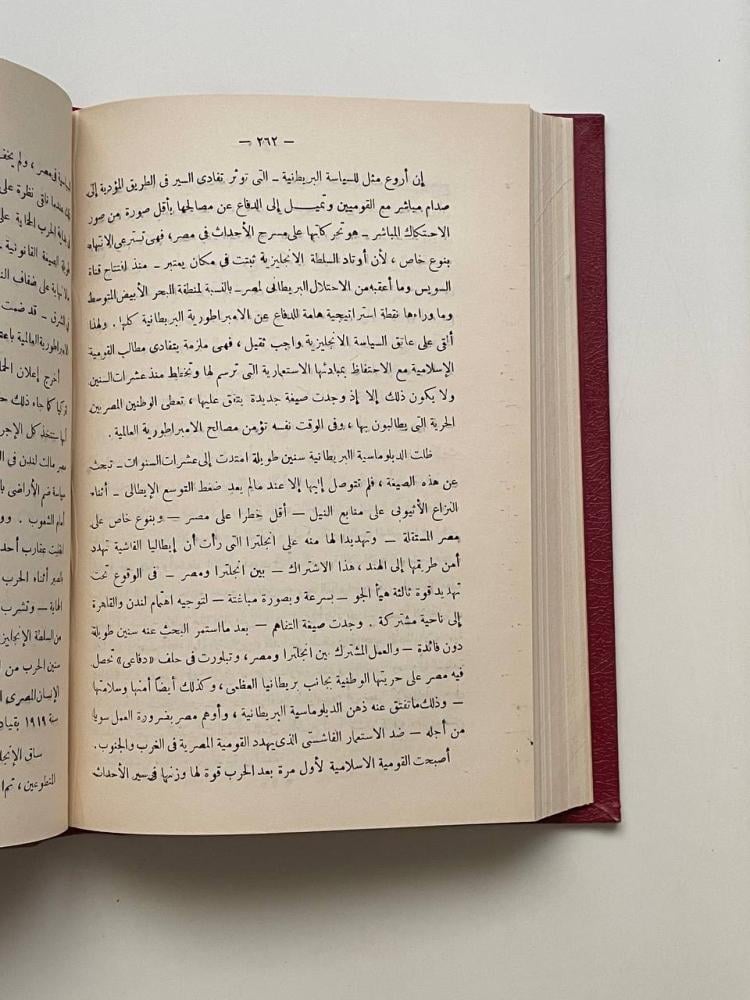 — ٢٦٢ —
إن أروع مثل للسياسة البريطانية – التى توثر تفادى السير فى الطريق المؤدية إلى
صدام مباشر مع القوميين وتميل إلى الدفاع عن مصالحها بأقل صورة من صور
الاحتكاك المباشر – هو تحركاتها على مسرح الأحداث فى مصر، فهى تسترعى الانتباه
بنوع خاص ، لأن أوتاد السلطة الانجليزية ثبتت فى مكان يعتبر – منذ افتتاح قناة
السويس وما أعقبه من الاحتلال البريطانى لمصر – بالنسبة لمنطقة البحر الأبيض المتوسط
وما وراءها نقطة استراتيجية هامة للدفاع عن الامبراطورية البريطانية كلها . ولهذا
ألقى على عاتق السياسة الانجليزية واجب ثقيل ، فهى ملزمة بتفادى مطالب القومية
الإسلامية مع الاحتفاظ بمبادئها الاستعمارية التى ترسم لها وتخطط منذ عشرات السنين
ولا يكون ذلك إلا إذ وجدت صيغة جديدة يتفق عليها ، تعطى الوطنين المصريين
الحرية التى يطالبون بها ، وفى الوقت نفسه تؤمن مصالح الامبراطورية العالمية .
ظلت الدبلوماسية البريطانية سنين طويلة امتدت إلى عشرات السنوات – تبحث
عن هذه الصيغة ، فلم تتوصل إليها إلا عند مالم يعد ضغط التوسع الإيطالى – أثناء
النزاع الأثيوبى على منابع النيل – أقل خطرا على مصر – وبنوع خاص على
مصر المستقلة – وتهديدا لها منه على انجلترا التى رأت أن إيطاليا الفاشية تهدد
أمن طريقها إلى الهند ، هذا الاشتراك – بين انجلترا ومصر – فى الوقوع تحت
تهديد قوة ثالثة هيأ الجو – بسرعة وبصورة مباغتة – لتوجيه اهتمام لندن والقاهرة
إلى ناحية مشتركة . وجدت صيغة التفاهم – بعد ما استمر البحث عنه سنين طويلة
دون فائدة – والعمل المشترك بين انجلترا ومصر ، وتبلورت فى حلف «دفاعى» تحصل
فيه مصر على حريتها الوطنية بجانب بريطانيا العظمى ، وكذلك أيضاً أمنها وسلامتها
– وذلك ما تفتق عنه ذهن الدبلوماسية البريطانية ، وأوهم مصر بضرورة العمل سويا
من أجله – ضد الاستعمار الفاشستى الذى يهدد القومية المصرية فى الغرب والجنوب .
أصبحت القومية الاسلامية لأول مرة بعد الحرب قوة لها وزنها فى سير الأحداث